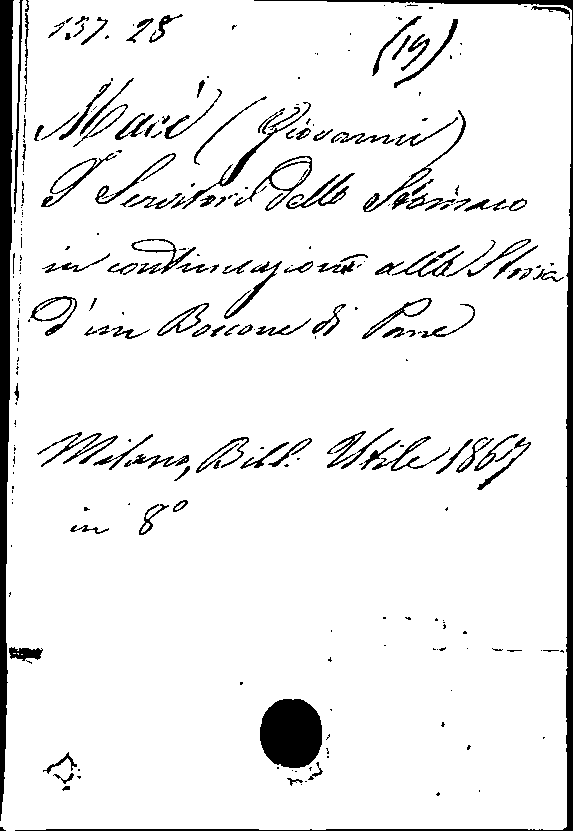 137. 28 (19)
Macé (Giovanni)
I Servitori dello Stomaco
in continuazione alla Storia
d'un Boccone di Pane
Milano, Bibl. Utile 1867
in 8°